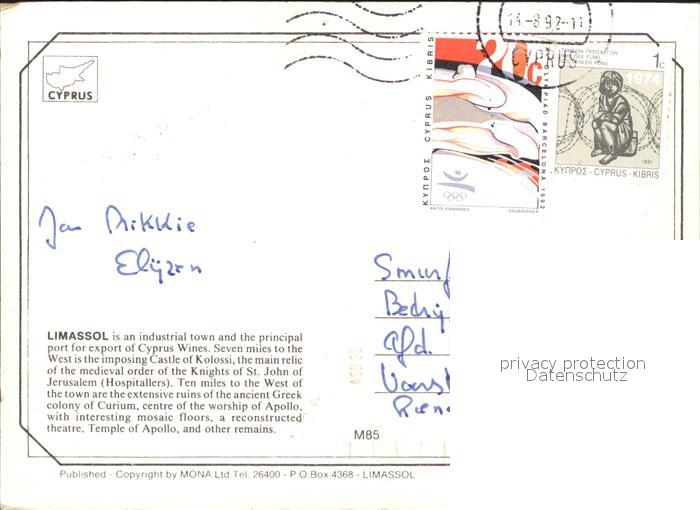 14-8-92-11
CYPRUS
CYPRUS
ΚΥΠΡΟΣ CYPRUS KIBRIS
20c
OLYMPIAD BARCELONA 1992
1c
1974
1991
ΚΥΠΡΟΣ - CYPRUS - KIBRIS
Jan Mikkie
Elijzen
Smurf
Bedrij
Afd.
LIMASSOL is an industrial town and the principal
port for export of Cyprus Wines. Seven miles to the
West is the imposing Castle of Kolossi, the main relic
of the medieval order of the Knights of St. John of
Jerusalem (Hospitallers). Ten miles to the West of
the town are the extensive ruins of the ancient Greek
colony of Curium, centre of the worship of Apollo,
with interesting mosaic floors, a reconstructed
theatre, Temple of Apollo, and other remains.
M85
privacy protection
Datenschutz
Published - Copyright by MONA Ltd Tel. 26400 - P.O.Box 4368 - LIMASSOL